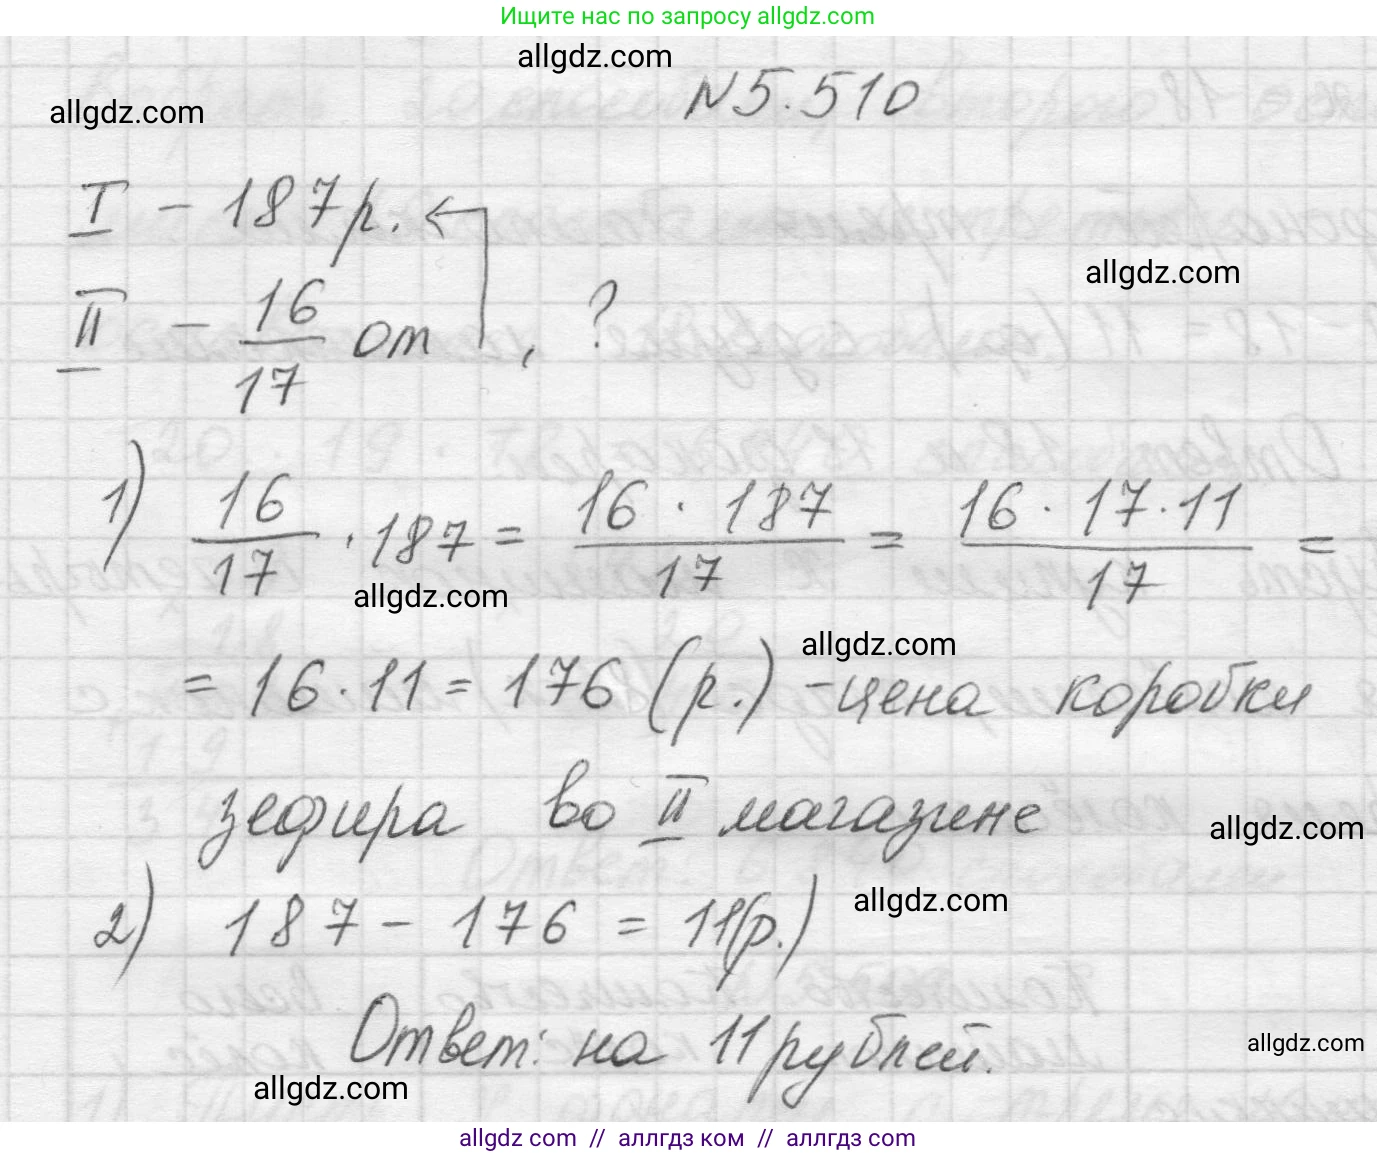 Ищите нас по запросу allgdz.com
allgdz.com
N 5.510
allgdz.com
I – 187 р.
allgdz.com
II – 16/17 от , ?
1) 16/17 · 187 = 16 · 187/17 = 16 · 17 · 11/17 =
allgdz.com
allgdz.com
= 16 · 11 = 176 (р.) – цена коробки
зефира во II магазине
allgdz.com
allgdz.com
2) 187 – 176 = 11(р.)
Ответ: на 11 рублей.
allgdz.com
allgdz.com
allgdz.com // аллгдз ком // аллгдз.com